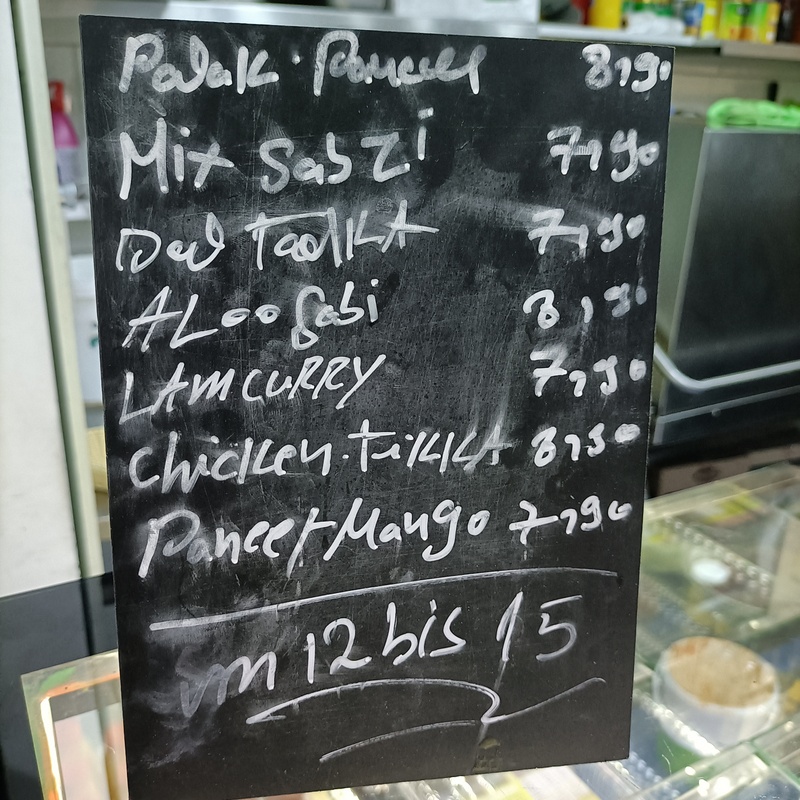 Palak Paneer 8,90
Mix Sabzi 7,90
Dal TadKA 7,90
ALoo Sabi 8,90
LAMCURRY 7,90
Chicken.TiKKA 8,50
Paneer Mango 7,90
um 12 bis 15